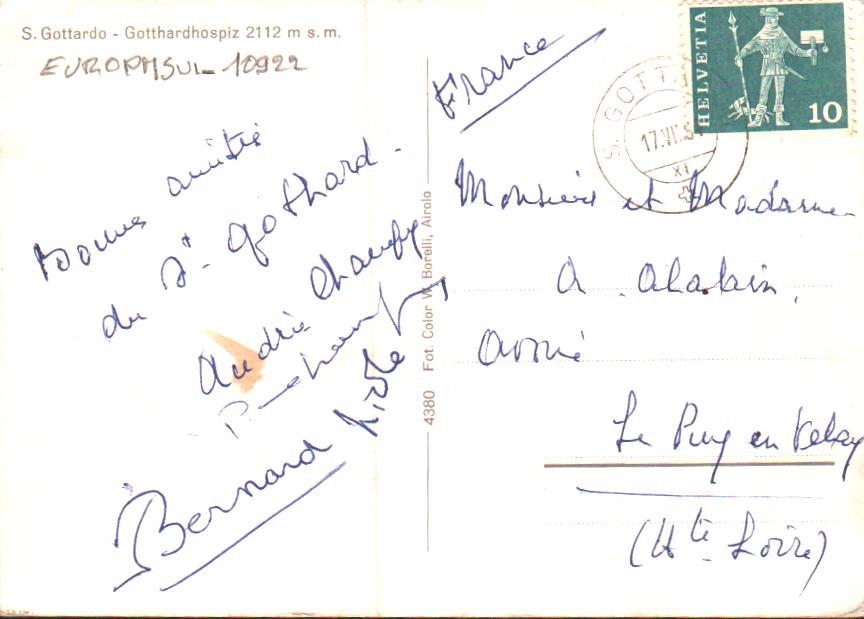 S. Gottardo - Gotthardhospiz 2112 m s.m.
EUROPHSUL 10922
Bonnes amitiés
du St. Gothard -
André Champ
P. Champ
Nicole
Bernard
4380 Fot. Color W. Borelli, Airolo
France
HELVETIA
10
S. GOTT
17.VII.
XI
Monsieur et Madame
A. Alalain,
Avoué
Le Puy en Velay
(Hte Loire)